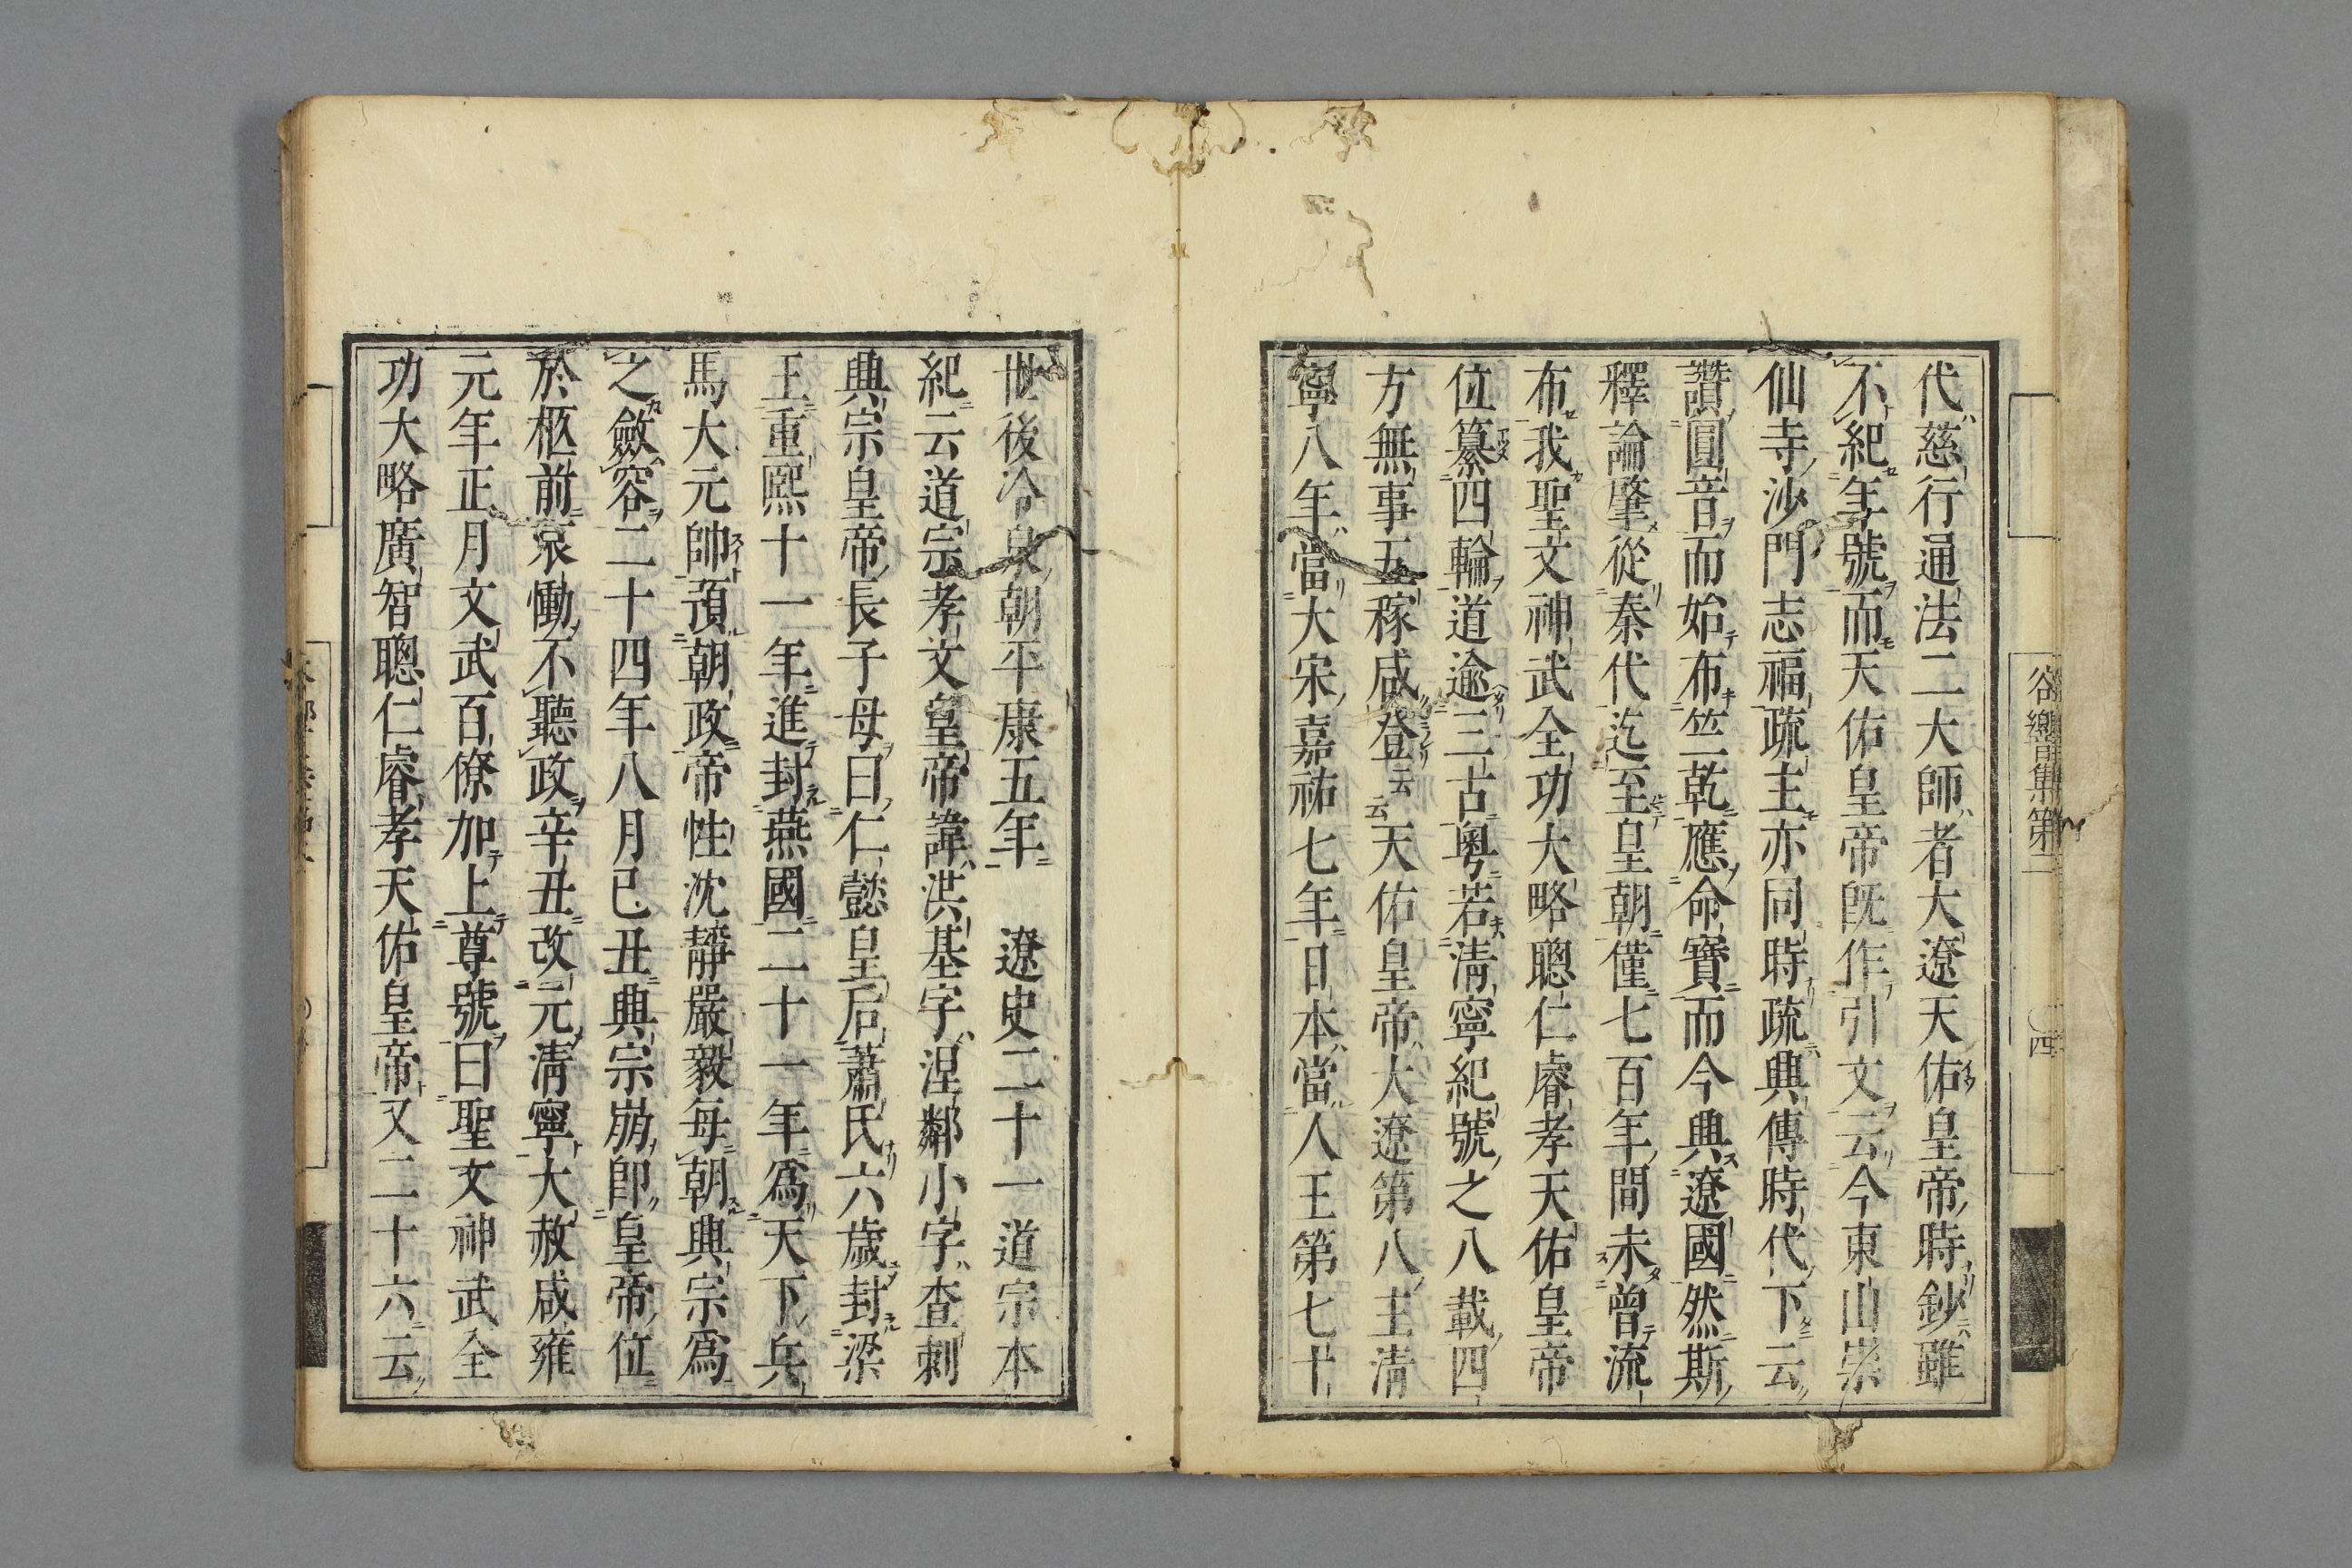 谷響集第二
四
代慈行通法二大師者大遼天佑皇帝時鈔雖
不紀年號而天佑皇帝既作引文云今東山崇
仙寺沙門志福疏主亦同時疏典傳時代下云
讚圓音而始布竺乾應命寶而今典遼國然斯
釋論肇從秦代迄至皇朝僅七百年間未曾流
布我聖文神武全功大略聰仁睿孝天佑皇帝
位纂四輪道逾三古粵若清寧紀號之八載四
方無事五稼咸登云云天佑皇帝大遼第八主清
寧八年當大宋嘉祐七年日本當人王第七十
世後冷泉朝平康五年 遼史二十一道宗本
紀云道宗孝文皇帝諱洪基字涅鄰小字查剌
興宗皇帝長子母曰仁懿皇后蕭氏六歲封梁
王重熙十一年進封燕國二十一年爲天下兵
馬大元帥預朝政帝性沈靜嚴毅每朝興宗爲
之斂容二十四年八月已丑興宗崩卽皇帝位
於柩前哀慟不聽政辛丑改元清寧大赦咸雍
元年正月文武百僚加上尊號曰聖文神武全
功大略廣智聰仁睿孝天佑皇帝又二十六云